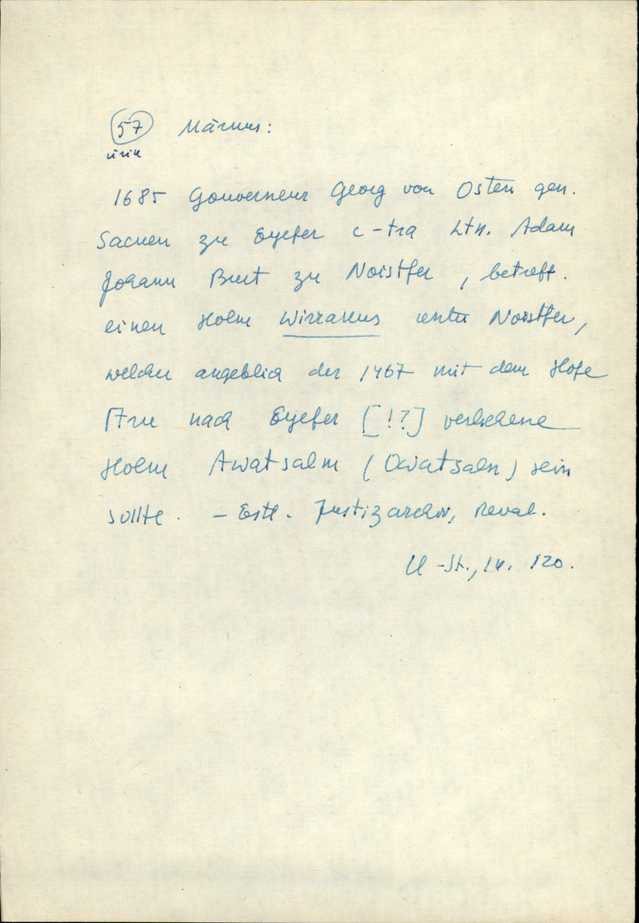 57 Märkus:
ürik
1685 Gouverneur Georg von Osten gen.
Sacken zu Eyefer c-tra Ltn. Adam
Johann Burt zu Noistfer, betreff.
einen Holm Wirrakus unter Noistfer,
welcher angeblich der 1467 mit dem Hofe
nach Eyefer [!?] verliehene
Holm Awatsalm (Owatsaln) sein
sollte. – Estl. Justizarchiv, Reval.
U-St., 14. 120.